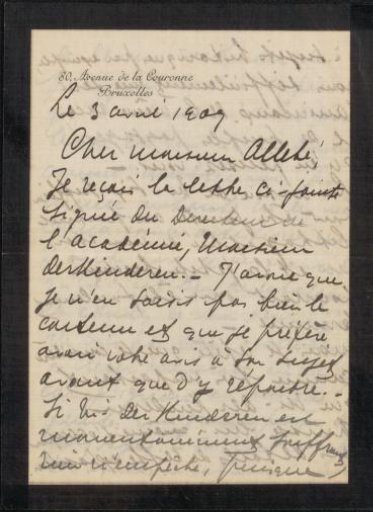 80. Avenue de la Couronne
Bruxelles
Le 3 avril 1909
Cher monsieur Allebé,
Je reçois la lettre ci-jointe
signée du Directeur de
l'académie, Monsieur
DerKinderen. – J'avoue que
je n'en saisis pas bien le
contenu et que je préfère
avoir votre avis à son sujet
avant que d'y répondre. –
Si Mr. DerKinderen est
momentanément souffrant
rien n'empêche, puisque